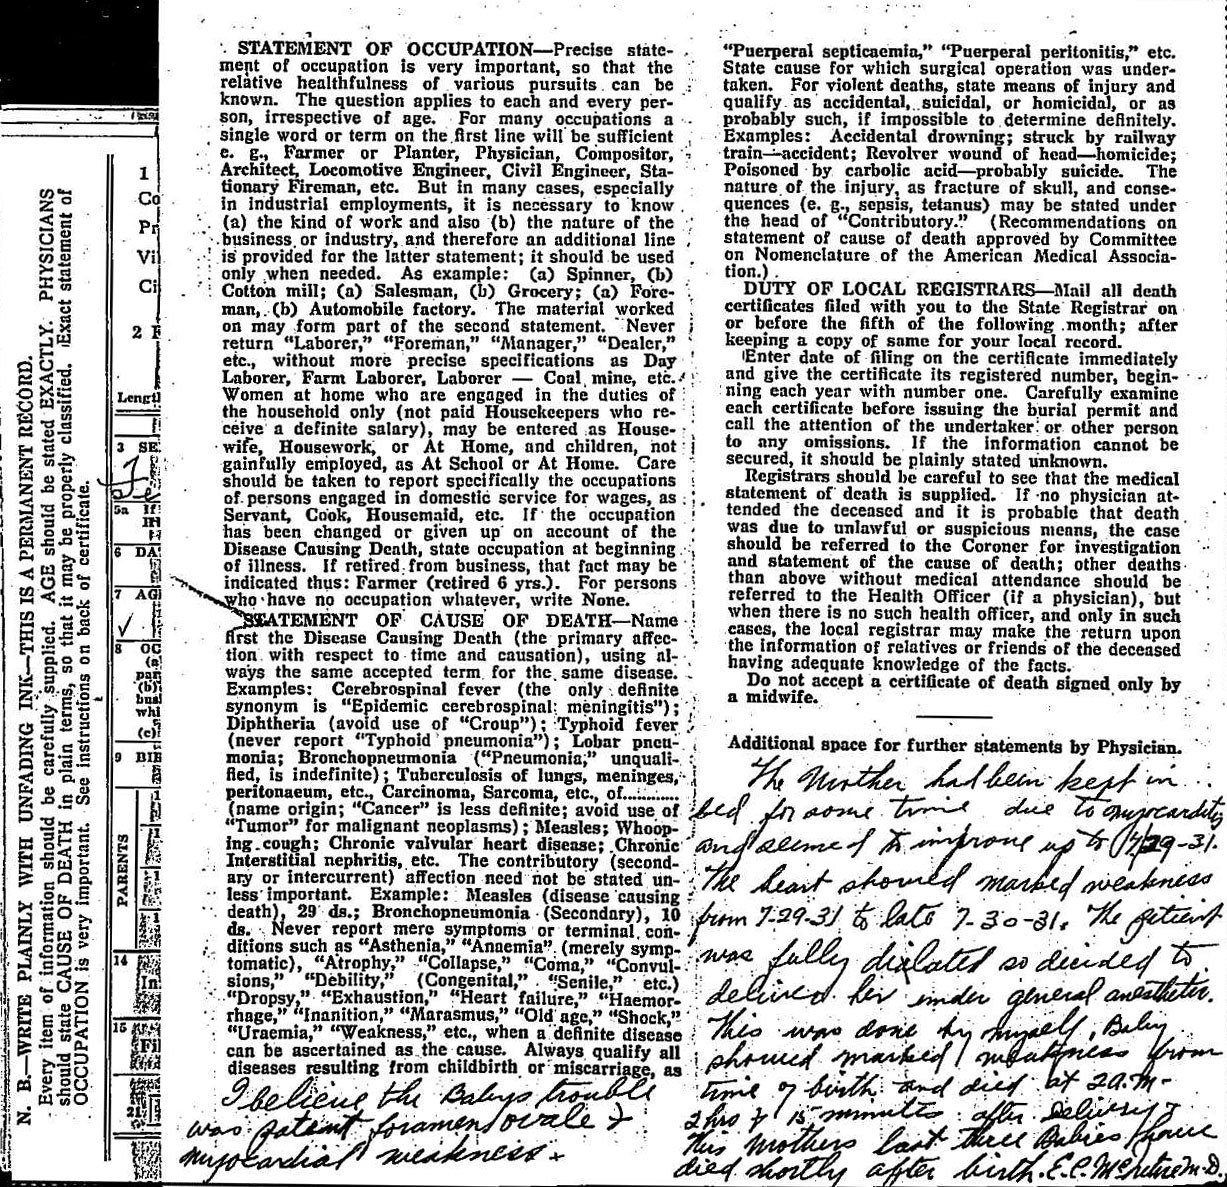 N. B.—WRITE PLAINLY WITH UNFADING INK—THIS IS A PERMANENT RECORD.
Every item of information should be carefully supplied. AGE should be stated EXACTLY. PHYSICIANS
should state CAUSE OF DEATH in plain terms, so that it may be properly classified. Exact statement of
OCCUPATION is very important. See instructions on back of certificate.
1
Co
Pr
Vil
Ci
2 F
Lengt
3 SE
Fe
5a If
6 DA
7 AG
8 OC
(a)
par
(b)
bus
whi
(c)
9 BIR
PARENTS
14
In
15
Fil
21
STATEMENT OF OCCUPATION—Precise state-
ment of occupation is very important, so that the
relative healthfulness of various pursuits can be
known. The question applies to each and every per-
son, irrespective of age. For many occupations a
single word or term on the first line will be sufficient
e. g., Farmer or Planter, Physician, Compositor,
Architect, Locomotive Engineer, Civil Engineer, Sta-
tionary Fireman, etc. But in many cases, especially
in industrial employments, it is necessary to know
(a) the kind of work and also (b) the nature of the
business or industry, and therefore an additional line
is provided for the latter statement; it should be used
only when needed. As example: (a) Spinner, (b)
Cotton mill; (a) Salesman, (b) Grocery; (a) Fore-
man, (b) Automobile factory. The material worked
on may form part of the second statement. Never
return "Laborer," "Foreman," "Manager," "Dealer,"
etc., without more precise specifications as Day
Laborer, Farm Laborer, Laborer — Coal mine, etc.
Women at home who are engaged in the duties of
the household only (not paid Housekeepers who re-
ceive a definite salary), may be entered as House-
wife, Housework, or At Home, and children, not
gainfully employed, as At School or At Home. Care
should be taken to report specifically the occupations
of persons engaged in domestic service for wages, as
Servant, Cook, Housemaid, etc. If the occupation
has been changed or given up on account of the
Disease Causing Death, state occupation at beginning
of illness. If retired from business, that fact may be
indicated thus: Farmer (retired 6 yrs.). For persons
who have no occupation whatever, write None.
STATEMENT OF CAUSE OF DEATH—Name
first the Disease Causing Death (the primary affec-
tion with respect to time and causation), using al-
ways the same accepted term for the same disease.
Examples: Cerebrospinal fever (the only definite
synonym is "Epidemic cerebrospinal meningitis");
Diphtheria (avoid use of "Croup"); Typhoid fever
(never report "Typhoid pneumonia"); Lobar pneu-
monia; Bronchopneumonia ("Pneumonia," unquali-
fied, is indefinite); Tuberculosis of lungs, meninges,
peritonaeum, etc., Carcinoma, Sarcoma, etc., of............
(name origin; "Cancer" is less definite; avoid use of
"Tumor" for malignant neoplasms); Measles; Whoop-
ing cough; Chronic valvular heart disease; Chronic
Interstitial nephritis, etc. The contributory (second-
ary or intercurrent) affection need not be stated un-
less important. Example: Measles (disease causing
death), 29 ds.; Bronchopneumonia (Secondary), 10
ds. Never report mere symptoms or terminal con-
ditions such as "Asthenia," "Anaemia" (merely symp-
tomatic), "Atrophy," "Collapse," "Coma," "Convul-
sions," "Debility," (Congenital, "Senile," etc.)
"Dropsy," "Exhaustion," "Heart failure," "Haemor-
rhage," "Inanition," "Marasmus," "Old age," "Shock,"
"Uraemia," "Weakness," etc., when a definite disease
can be ascertained as the cause. Always qualify all
diseases resulting from childbirth or miscarriage, as
I believe the Babys trouble
was patent foramen ovale &
myocardial weakness
"Puerperal septicaemia," "Puerperal peritonitis," etc.
State cause for which surgical operation was under-
taken. For violent deaths, state means of injury and
qualify as accidental, suicidal, or homicidal, or as
probably such, if impossible to determine definitely.
Examples: Accidental drowning; struck by railway
train—accident; Revolver wound of head—homicide;
Poisoned by carbolic acid—probably suicide. The
nature of the injury, as fracture of skull, and conse-
quences (e. g., sepsis, tetanus) may be stated under
the head of "Contributory." (Recommendations on
statement of cause of death approved by Committee
on Nomenclature of the American Medical Associa-
tion.)
DUTY OF LOCAL REGISTRARS—Mail all death
certificates filed with you to the State Registrar on
or before the fifth of the following month; after
keeping a copy of same for your local record.
Enter date of filing on the certificate immediately
and give the certificate its registered number, begin-
ning each year with number one. Carefully examine
each certificate before issuing the burial permit and
call the attention of the undertaker or other person
to any omissions. If the information cannot be
secured, it should be plainly stated unknown.
Registrars should be careful to see that the medical
statement of death is supplied. If no physician at-
tended the deceased and it is probable that death
was due to unlawful or suspicious means, the case
should be referred to the Coroner for investigation
and statement of the cause of death; other deaths
than above without medical attendance should be
referred to the Health Officer (if a physician), but
when there is no such health officer, and only in such
cases, the local registrar may make the return upon
the information of relatives or friends of the deceased
having adequate knowledge of the facts.
Do not accept a certificate of death signed only by
a midwife.
Additional space for further statements by Physician.
The Mother had been kept in
bed for some time due to myocarditis
and seemed to improve up to 7/29-31.
The heart showed marked weakness
from 7-29-31 to late 7-30-31. The patient
was fully dialated so decided to
deliver her under general anesthetic.
This was done by myself, Baby
showed marked weakness from
time of birth and died at 2 A.M-
2 hrs & 15 minutes after Delivery
This Mothers last three Babies have
died shortly after birth. E.C. McIntire M.D.